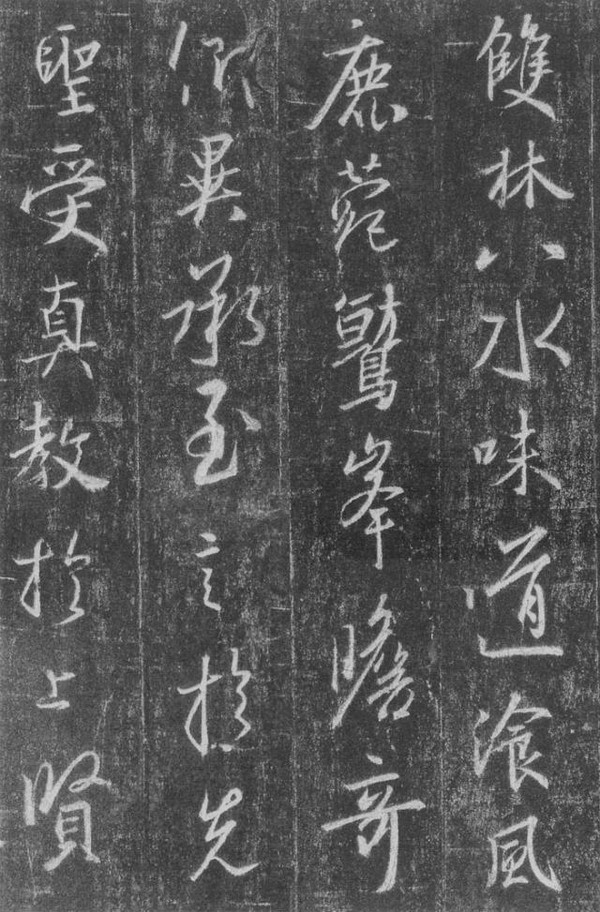 雙林八水味道飡風
鹿菀鷲峯瞻奇
仰異承至言於先
聖受真教於上賢